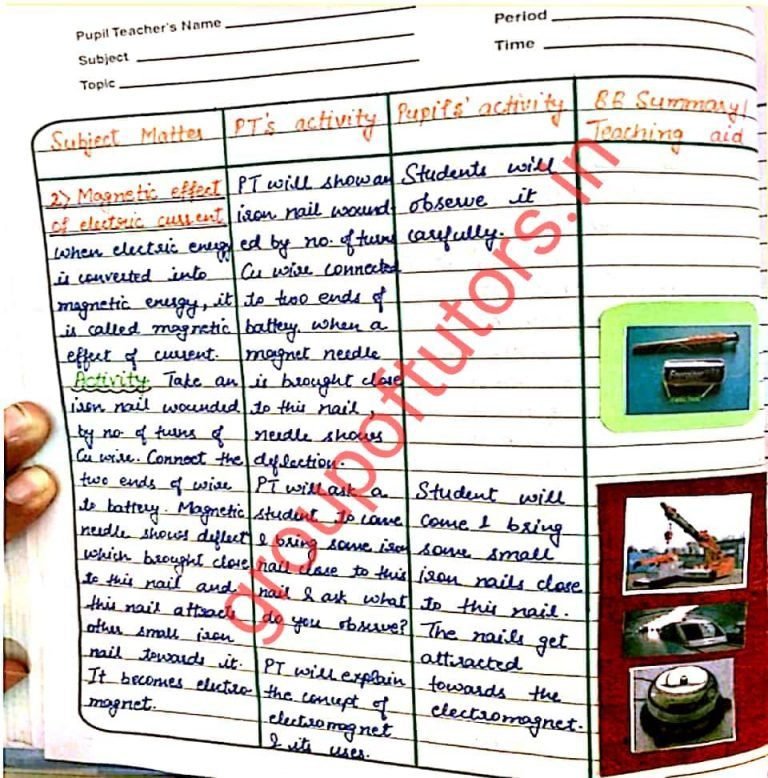 Pupil Teacher's Name
Subject
Topic
Period
Time
Subject Matter
2) Magnetic effect
of electric current
when electric energy
is converted into
magnetic energy, it
is called magnetic
effect of current.
Activity: Take an
iron nail wounded
by no. of turns of
Cu wire. Connect the
two ends of wire
to battery. Magnetic
needle shows deflect
which brought close
to this nail and
this nail attracts
other small iron
nail towards it.
It becomes electro
magnet.
PT's activity
PT will show an
iron nail wound-
ed by no. of turns
Cu wire connected
to two ends of
battery. When a
magnet needle
is brought close
to this nail,
needle shows
deflection.
PT will ask a
student to come
& bring some iron
nail close to this
nail & ask what
do you observe?
PT will explain
the concept of
electromagnet
& its uses.
Pupils' activity
Students will
observe it
carefully.
Student will
come & bring
some small
iron nails close
to this nail.
The nails get
attracted
towards the
electromagnet.
BB Summary/
Teaching aid
groupoftutors.in